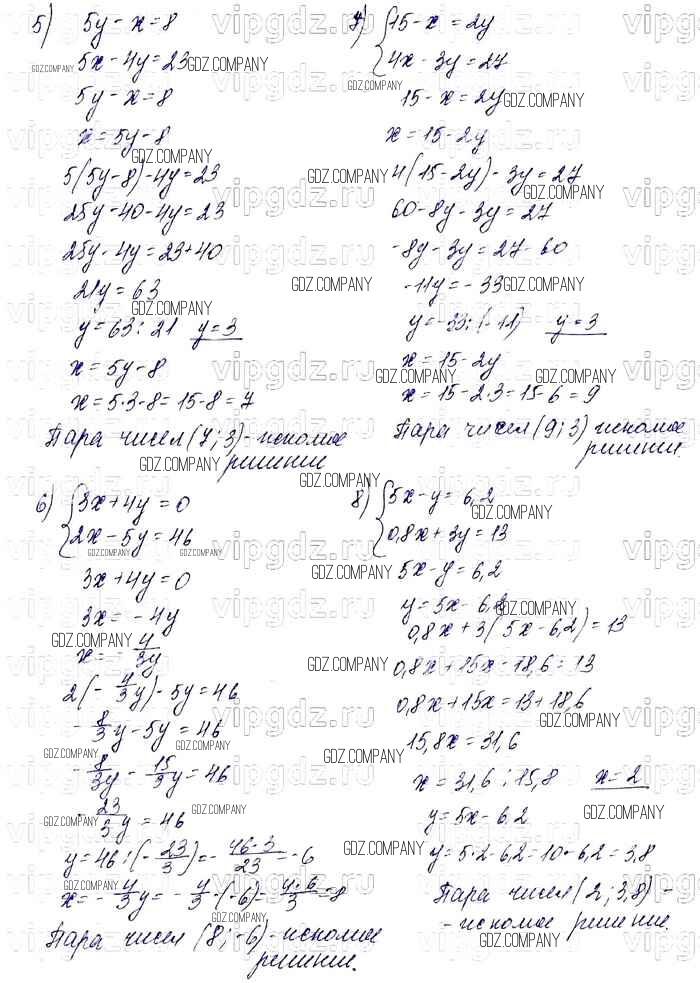 5) 5y - x = 8
5x - 4y = 23
5y - x = 8
x = 5y - 8
5(5y - 8) - 4y = 23
25y - 40 - 4y = 23
25y - 4y = 23 + 40
21y = 63
y = 63 : 21 y = 3
x = 5y - 8
x = 5·3 - 8 = 15 - 8 = 7
Пара чисел (7; 3) - искомое
решение
6) 3x + 4y = 0
2x - 5y = 46
3x + 4y = 0
3x = - 4y
x = - 4/3y
2(- 4/3y) - 5y = 46
- 8/3y - 5y = 46
- 8/3y - 15/3y = 46
- 23/3y = 46
y = 46 : (- 23/3) = - 46·3/23 = -6
x = - 4/3y = - 4/3·(-6) = 4·6/3 = 8
Пара чисел (8; -6) - искомое
решение.
7) 15 - x = 2y
4x - 3y = 27
15 - x = 2y
x = 15 - 2y
4(15 - 2y) - 3y = 27
60 - 8y - 3y = 27
-8y - 3y = 27 - 60
-11y = - 33
y = -33 : (-11) y = 3
x = 15 - 2y
x = 15 - 2·3 = 15 - 6 = 9
Пара чисел (9; 3) искомое
решение.
8) 5x - y = 6,2
0,8x + 3y = 13
5x - y = 6,2
y = 5x - 6,2
0,8x + 3(5x - 6,2) = 13
0,8x + 15x - 18,6 = 13
0,8x + 15x = 13 + 18,6
15,8x = 31,6
x = 31,6 : 15,8 x = 2
y = 5x - 6.2
y = 5·2 - 6,2 = 10 - 6,2 = 3,8
Пара чисел (2; 3,8) -
- искомое решение.
GDZ.COMPANY
vipgdz.ru